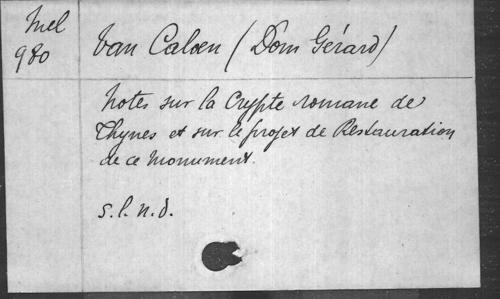 Mel
980
Van Caloen (Dom Gérard)
Notes sur la Crypte romane de
Thynes et sur le projet de Restauration
de ce Monument.
s.l.n.d.